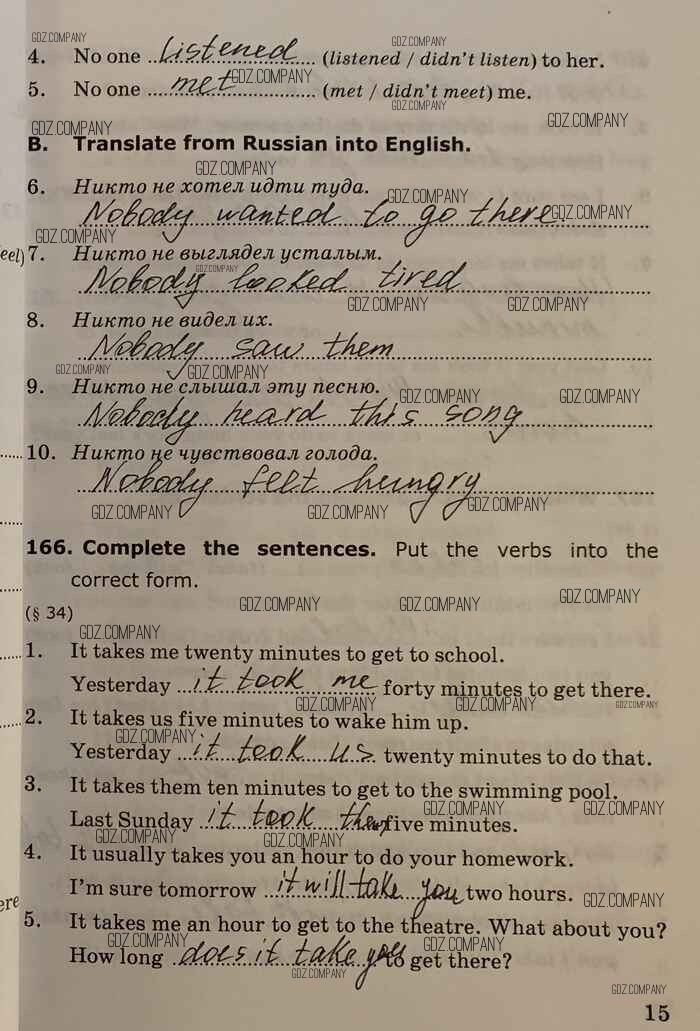 4. No one listened (listened / didn't listen) to her.
5. No one met (met / didn't meet) me.
B. Translate from Russian into English.
6. Никто не хотел идти туда.
Nobody wanted to go there.
eel) 7. Никто не выглядел усталым.
Nobody looked tired
8. Никто не видел их.
Nobody saw them
9. Никто не слышал эту песню.
Nobody heard this song
10. Никто не чувствовал голода.
Nobody felt hungry
166. Complete the sentences. Put the verbs into the
correct form.
(§ 34)
1. It takes me twenty minutes to get to school.
Yesterday it took me forty minutes to get there.
2. It takes us five minutes to wake him up.
Yesterday it took us twenty minutes to do that.
3. It takes them ten minutes to get to the swimming pool.
Last Sunday it took them five minutes.
4. It usually takes you an hour to do your homework.
I'm sure tomorrow it will take you two hours.
ere
5. It takes me an hour to get to the theatre. What about you?
How long does it take you to get there?
GDZ.COMPANY
15